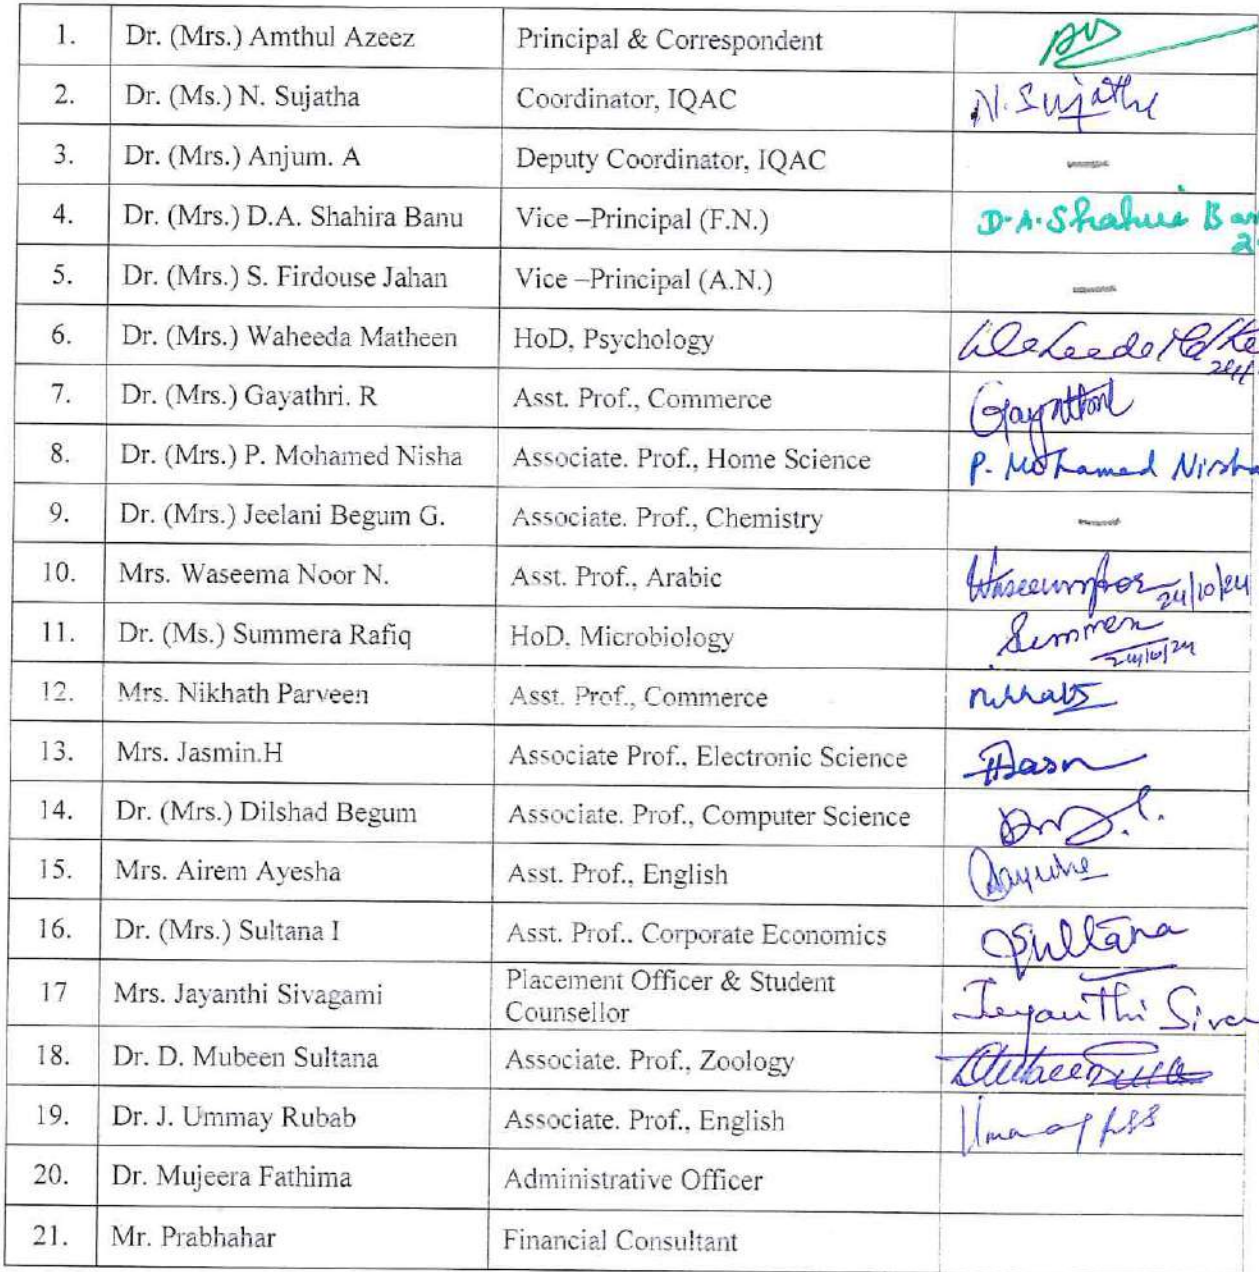 1. Dr. (Mrs.) Amthul Azeez Principal & Correspondent
2. Dr. (Ms.) N. Sujatha Coordinator, IQAC N. Sujatha
3. Dr. (Mrs.) Anjum. A Deputy Coordinator, IQAC —
4. Dr. (Mrs.) D.A. Shahira Banu Vice –Principal (F.N.) D.A. Shahira Ban
5. Dr. (Mrs.) S. Firdouse Jahan Vice –Principal (A.N.) —
6. Dr. (Mrs.) Waheeda Matheen HoD, Psychology Waheeda
7. Dr. (Mrs.) Gayathri. R Asst. Prof., Commerce Gayathri
8. Dr. (Mrs.) P. Mohamed Nisha Associate. Prof., Home Science P. Mohamed Nisha
9. Dr. (Mrs.) Jeelani Begum G. Associate. Prof., Chemistry —
10. Mrs. Waseema Noor N. Asst. Prof., Arabic 24/10/24
11. Dr. (Ms.) Summera Rafiq HoD, Microbiology Summera
24/10/24
12. Mrs. Nikhath Parveen Asst. Prof., Commerce
13. Mrs. Jasmin.H Associate Prof., Electronic Science
14. Dr. (Mrs.) Dilshad Begum Associate. Prof., Computer Science
15. Mrs. Airem Ayesha Asst. Prof., English
16. Dr. (Mrs.) Sultana I Asst. Prof.. Corporate Economics Sultana
17 Mrs. Jayanthi Sivagami Placement Officer & Student
Counsellor Jeyanthi Siva
18. Dr. D. Mubeen Sultana Associate. Prof., Zoology
19. Dr. J. Ummay Rubab Associate. Prof., English
20. Dr. Mujeera Fathima Administrative Officer
21. Mr. Prabhahar Financial Consultant